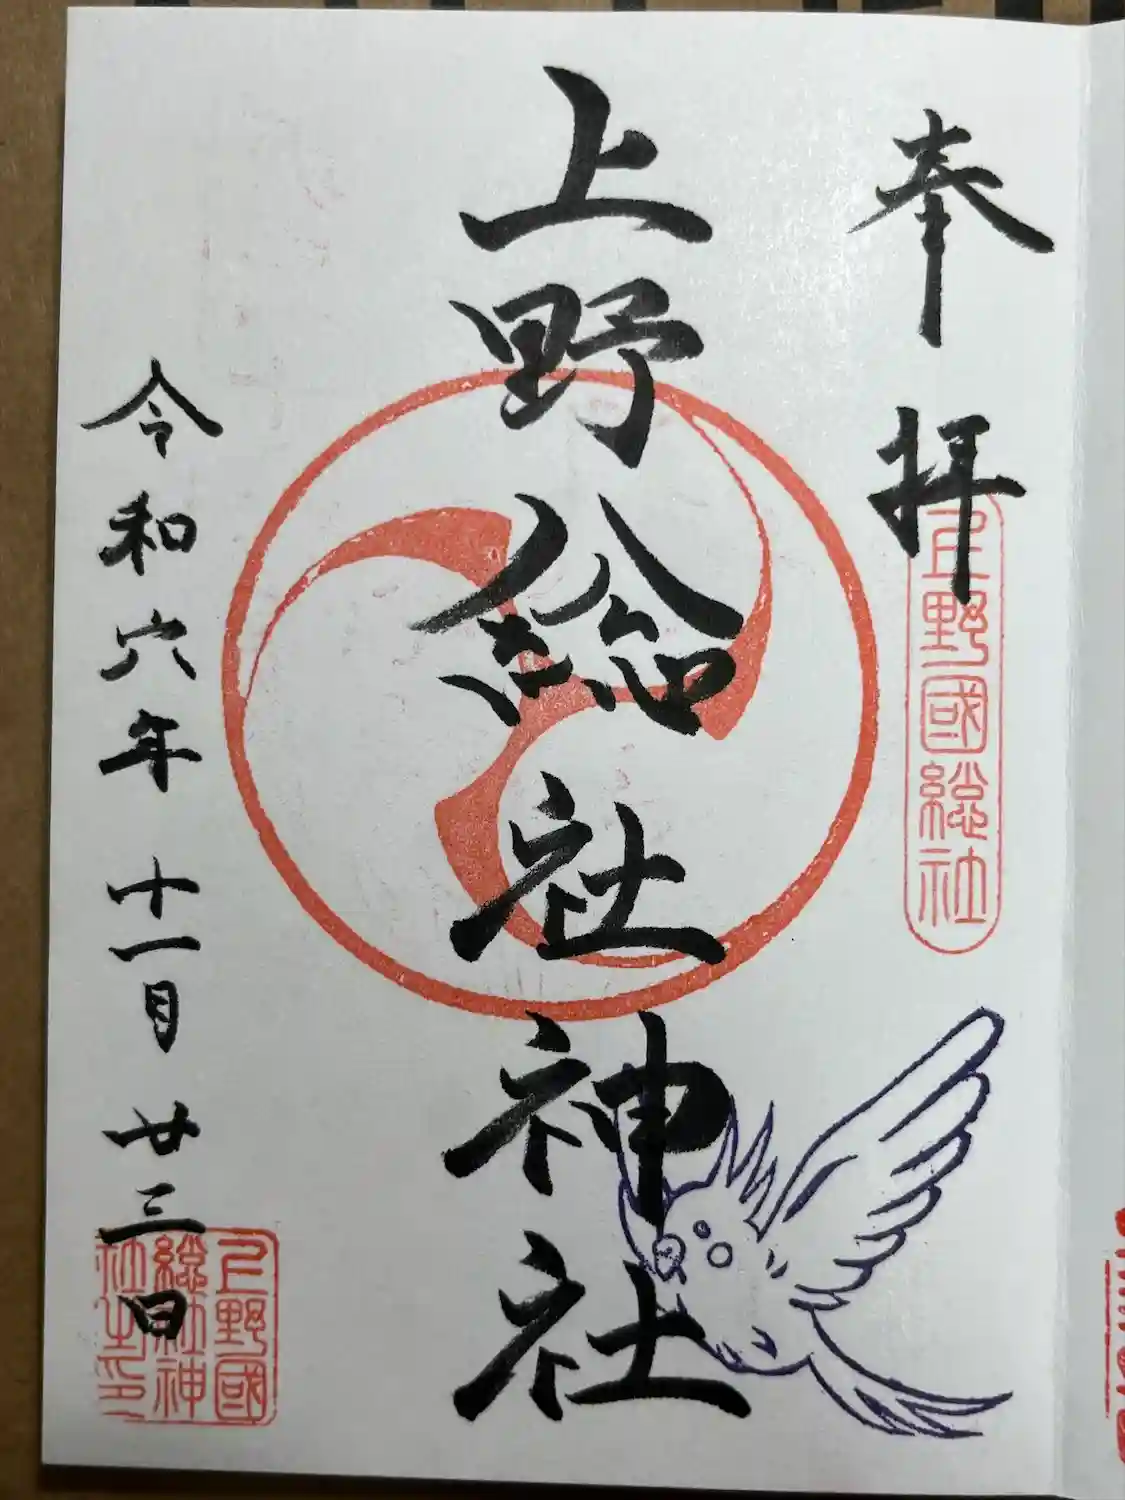 奉拝
上野國総社
上野総社神社
令和六年十一月廿三日
上野國
総社神
社之印